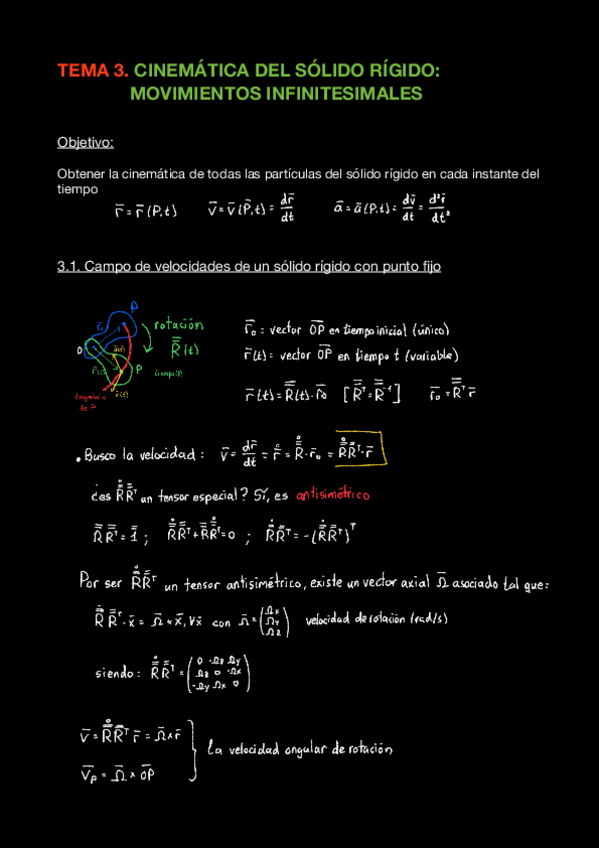 TEMA 3. CINEMÁTICA DEL SÓLIDO RÍGIDO:
MOVIMIENTOS INFINITESIMALES
Objetivo:
Obtener la cinemática de todas las partículas del sólido rígido en cada instante del
tiempo
r̄ = r̄(P,t) v̄ = v̄(P,t) = dr̄/dt ā = ā(P,t) = dv̄/dt = d²r̄/dt²
3.1. Campo de velocidades de un sólido rígido con punto fijo
P
rotación
r̄₀
O
R̿(t)
P
r̄(t)
tiempo(t)
v̄(t)
trayectoria
de P
r̄₀ : vector O̅P̅ en tiempo inicial (único)
r̄(t) : vector O̅P̅ en tiempo t (variable)
r̄(t) = R̿(t)·r̄₀ [R̿ᵀ = R̿⁻¹] r̄₀ = R̿ᵀ r̄
• Busco la velocidad : v̄ = dr̄/dt = ṙ̄ = Ṙ̿·r̄₀ = Ṙ̿R̿ᵀ·r̄
¿es Ṙ̿R̿ᵀ un tensor especial? Sí, es antisimétrico
R̿R̿ᵀ = 1̿ ; Ṙ̿R̿ᵀ + R̿Ṙ̿ᵀ = 0 ; Ṙ̿R̿ᵀ = -(Ṙ̿R̿ᵀ)ᵀ
Por ser Ṙ̿R̿ᵀ un tensor antisimétrico, existe un vector axial Ω̄ asociado tal que:
Ṙ̿R̿ᵀ·x̄ = Ω̄ × x̄, ∀x̄ con Ω̄ = (Ωx Ωy Ωz) velocidad de rotación (rad/s)
siendo : Ṙ̿R̿ᵀ = (0 -Ωz Ωy
Ωz 0 -Ωx
-Ωy Ωx 0)
v̄ = Ṙ̿R̿ᵀ r̄ = Ω̄ × r̄
La velocidad angular de rotación
v̄P = Ω̄ × O̅P̅